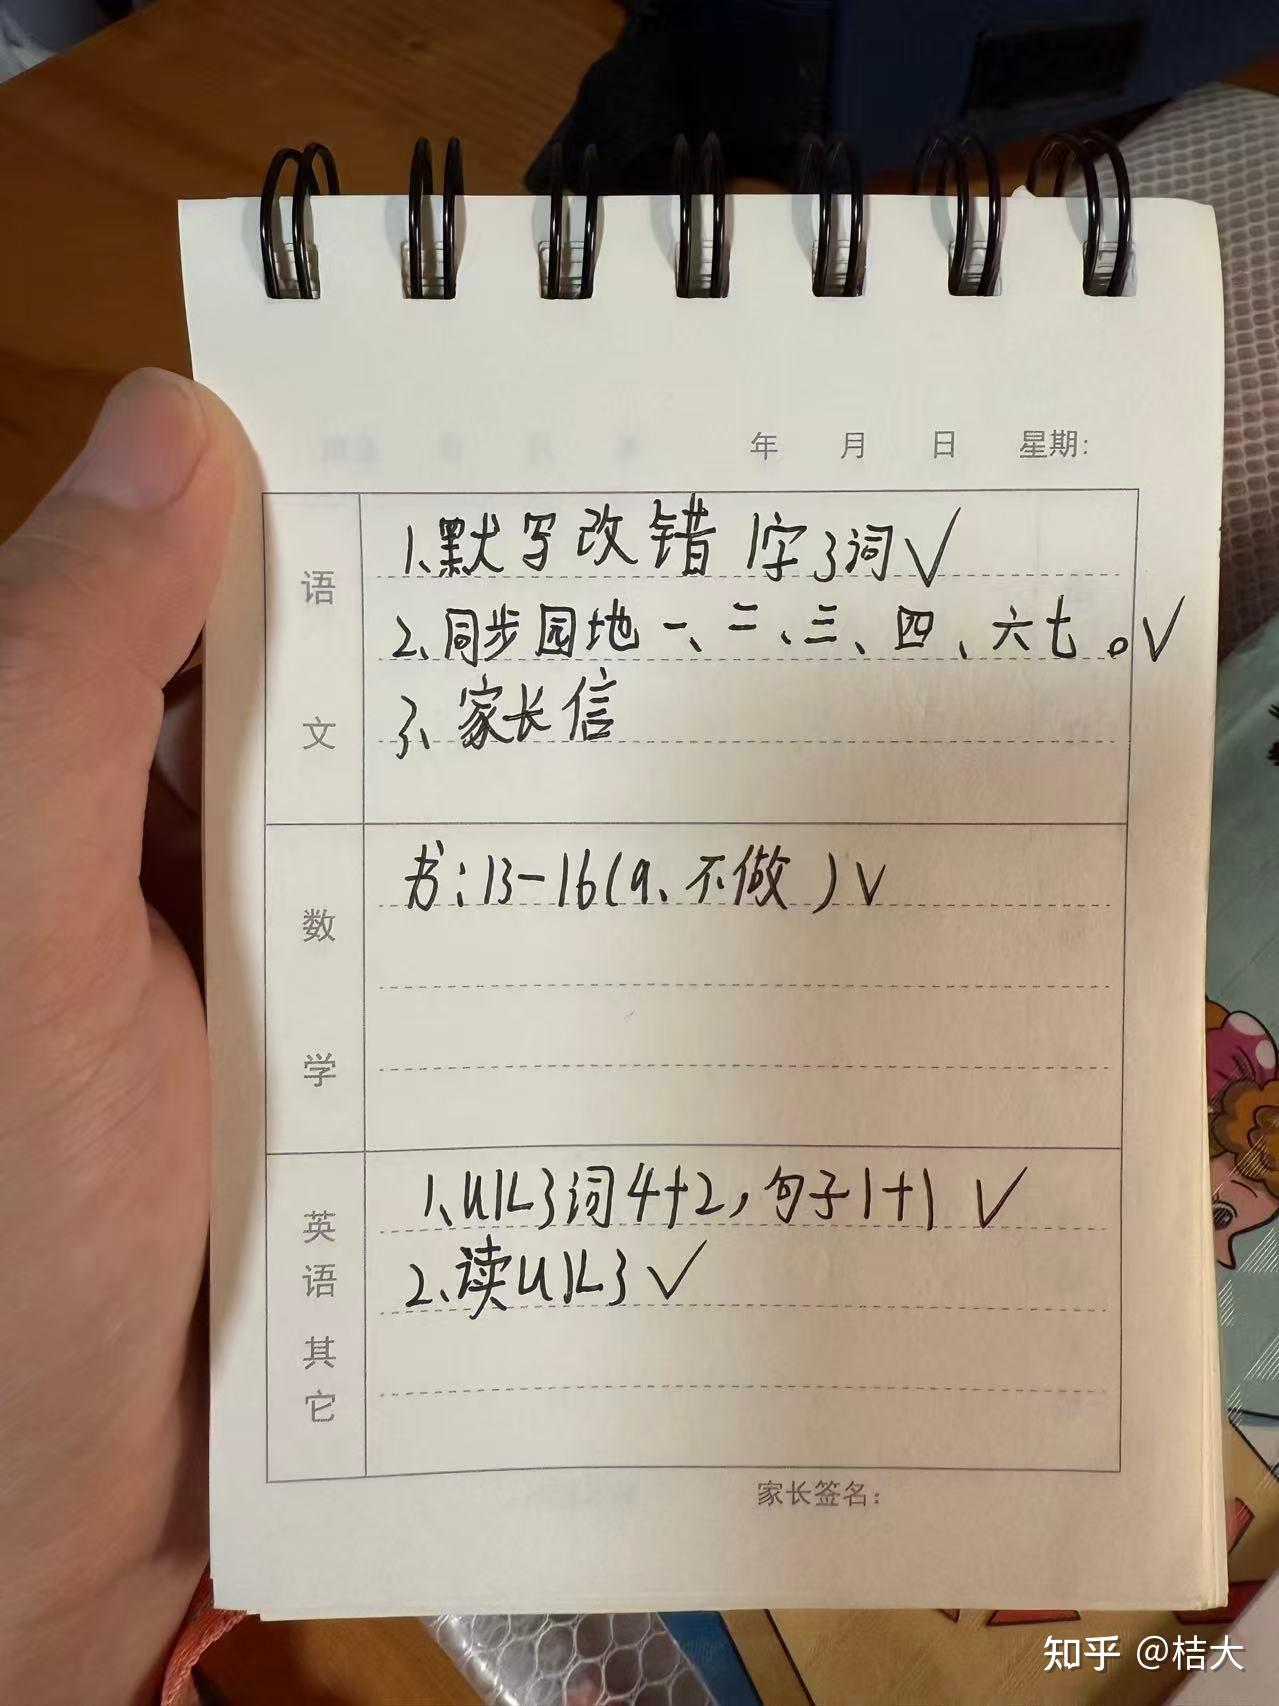 年 月 日 星期:
语文
1、默写改错 1字3词√
2、同步园地 一、二、三、四、六七。√
3、家长信
数学
书:13-16(9、不做)√
英语其它
1、U1L3词4+2,句子1+1 √
2、读U1L3√
家长签名:
知乎 @桔大